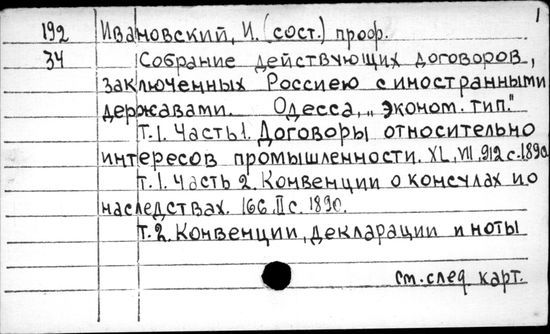 1
192 Ивановский, И. (сост.) проф.
34 Собрание действующих договоров,
заключенных Россиею с иностранными
державами. Одесса, „Эконом. тип."
Т.1. Часть 1. Договоры относительно
интересов промышленности. XL, VII, 912 с. 1890
Т.1. Часть 2. Конвенции о консулах и о
наследствах. 166, II с. 1890.
Т.2. Конвенции, декларации и ноты
см. след. карт.